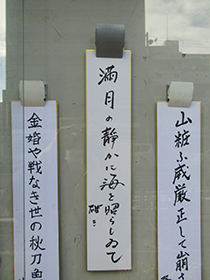 山粧ふ威厳正して崩
満月の静かに海を照らしゐて
金婚や戦なき世の秋刀魚